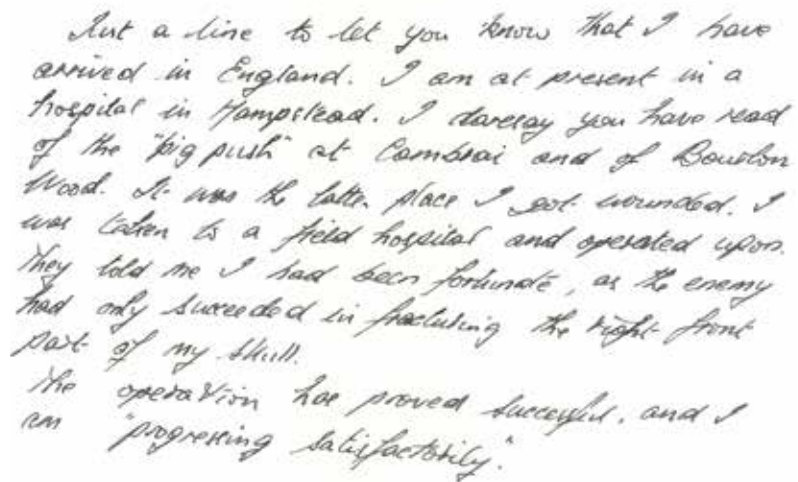 Just a line to let you know that I have
arrived in England. I am at present in a
hospital in Hampstead. I daresay you have read
of the "big push" at Cambrai and of Bourlon
Wood. It was the latter place I got wounded. I
was taken to a field hospital and operated upon.
They told me I had been fortunate, as the enemy
had only succeeded in fracturing the right front
part of my skull.
The operation has proved successful, and I
am "progressing satisfactorily".